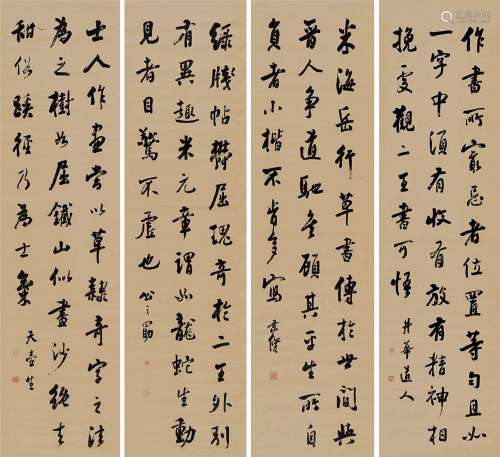 作書所最忌者位置等勻且如
一字中須有收有放有精神相
挽處觀二王書可悟 井華道人
米海岳行草書傳於世間與
晉人爭道馳矣顧其平生所自
負者小楷不肯多寫
綠牋帖欝屈瑰奇於二王外別
有異趣米元章謂如龍蛇生動
見者目驚不虛也
士人作畫當以草隸奇字之法
為之樹如屈鐵山似畫沙絕去
甜俗蹊徑乃為士氣 天壺生